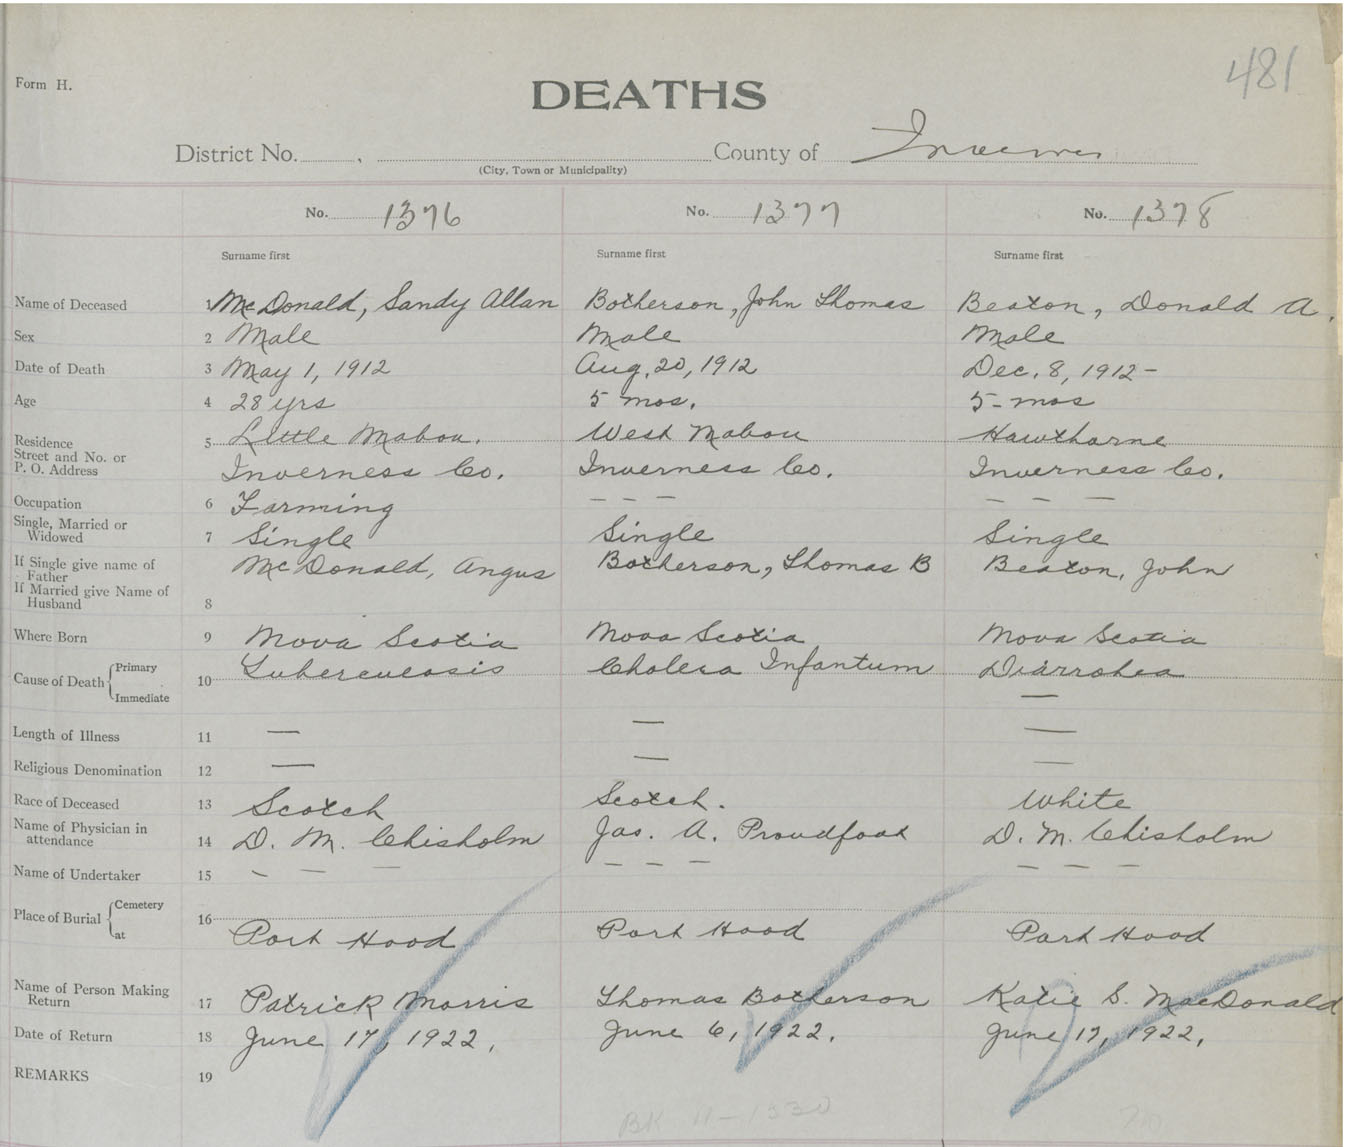 481
Form H.
DEATHS
District No. , County of Inverness
(City, Town or Municipality)
No. 1376 No. 1377 No. 1378
Surname first Surname first Surname first
Name of Deceased 1 McDonald, Sandy Allan Botherson, John Thomas Beaton, Donald A.
Sex 2 Male Male Male
Date of Death 3 May 1, 1912 Aug, 20, 1912 Dec. 8, 1912 -
Age 4 28 yrs 5 mos. 5 - mos
Residence 5 Little Mabou. West Mabou Hawthorne
Street and No. or
P. O. Address Inverness Co. Inverness Co. Inverness Co.
Occupation 6 Farming - - - - - -
Single, Married or
Widowed 7 Single Single Single
If Single give name of
Father McDonald, Angus Botherson, Thomas B Beaton, John
If Married give Name of
Husband 8
Where Born 9 Nova Scotia Nova Scotia Nova Scotia
Cause of Death Primary 10 Tuberculosis Cholera Infantum Diarrohea
Immediate —
Length of Illness 11 — — —
Religious Denomination 12 — — —
Race of Deceased 13 Scotch Scotch. White
Name of Physician in
attendance 14 D. M. Chisholm Jas. A. Proudfoot D. M. Chisholm
Name of Undertaker 15 - - - - - - - - -
Place of Burial Cemetery 16
at Port Hood Port Hood Port Hood
Name of Person Making
Return 17 Patrick Morris Thomas Botherson Katie S. MacDonald
Date of Return 18 June 17, 1922. June 6, 1922. June 17, 1922.
REMARKS 19
BK 11-1330